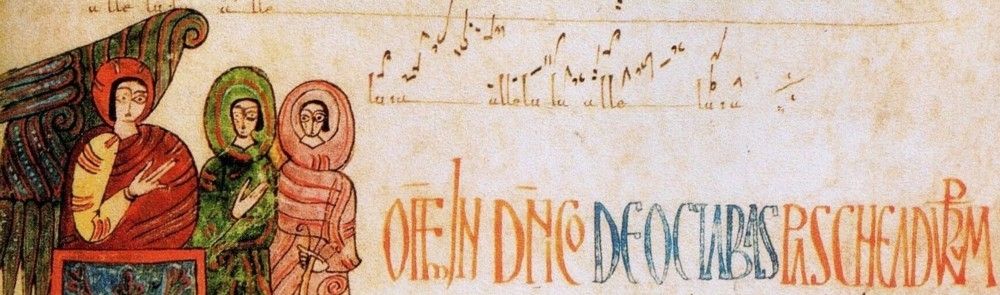 alleluia alle
luia alleluia alle luia
OFFM IN DNICO DE OCTABAS PASCHE AD